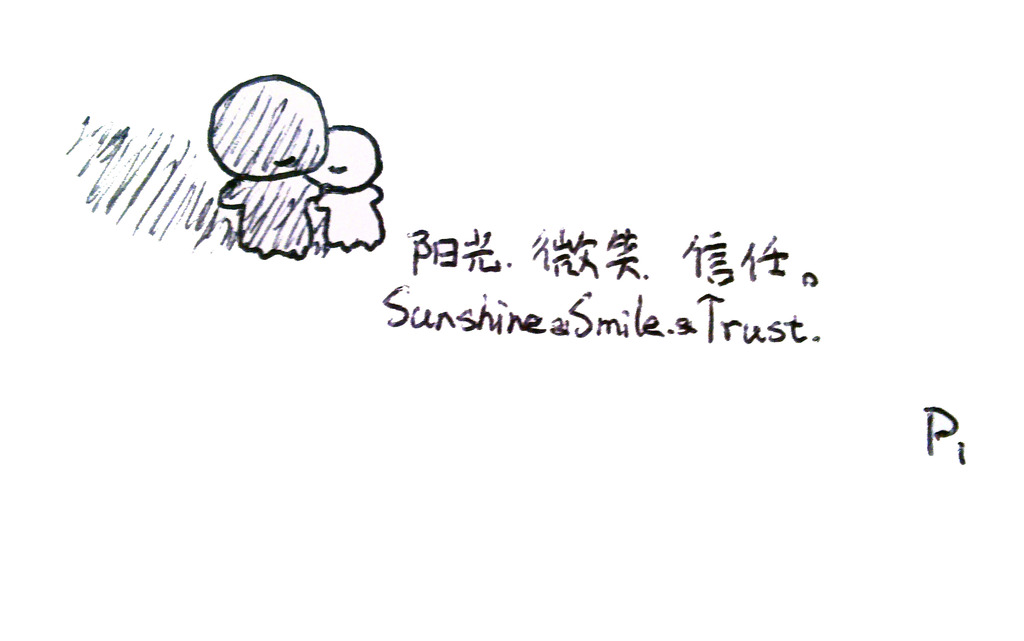 阳光.微笑.信任。
Sunshine&Smile.&Trust.
P1